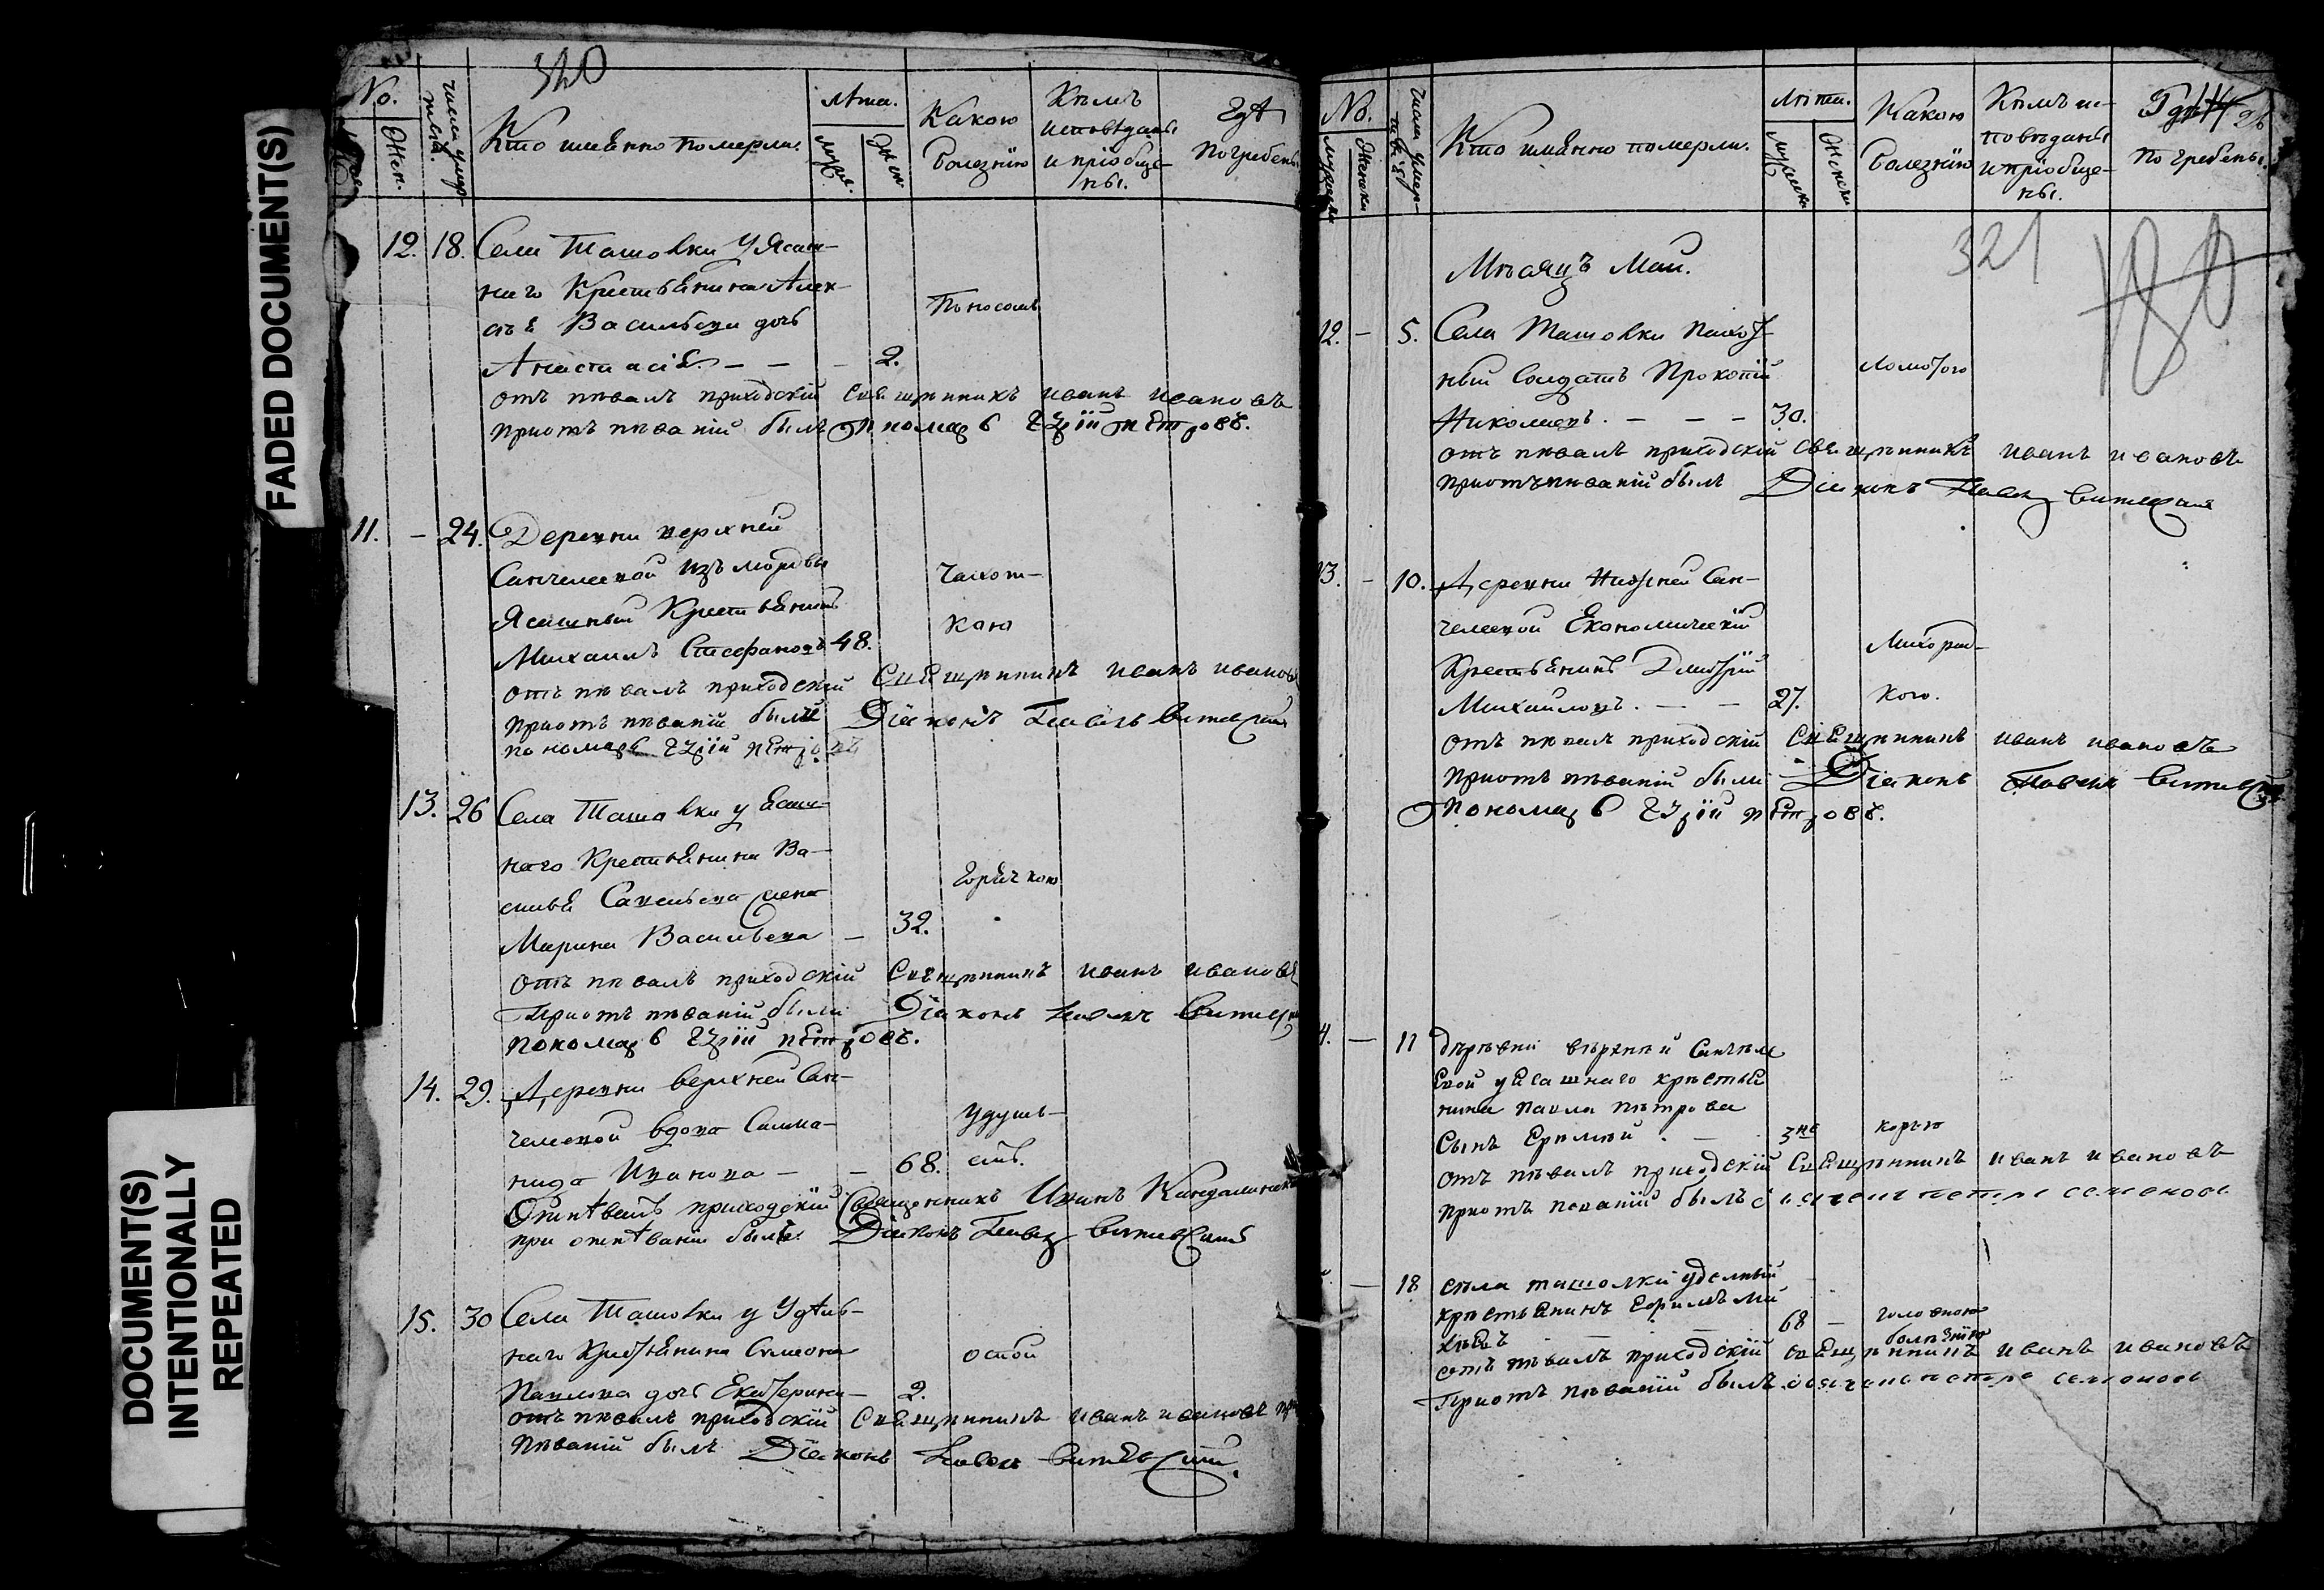 FADED DOCUMENT(S)
DOCUMENT(S)
INTENTIONALLY
REPEATED
320
No.
Жен.
число умер-
Кто имѣнно померли.
лѣта.
муж.
жен
Какою
болезнїю
Кѣмъ
исповѣданы
и прїобще-
ны.
Гдѣ
погребены
12. 18. Села Ташовки у Ясаш-
наго Крестьянина Алек-
сѣя Васильева дочь
Анастасія. — — — 2.
Поносомъ
отъ пѣвалъ приходскій священникъ иванъ ивановъ
приотъ пѣваніи былъ пономарь петровъ.
11. — 24. Деревни верхней
Санчелеевой изъ мордвы
Ясашный Крестьянинъ
Михаилъ Стефановъ 48.
Чахот-
кою
отъ пѣвалъ приходскій Священникъ иванъ ивановъ
приотъ пѣваніи были Дїаконъ Павелъ
пономарь петровъ
13. 26 Села Ташовки у Ясаш-
наго Крестьянина Ва-
силья Савельева жена
Марина Васильева — 32.
Горячкою
отъ пѣвалъ приходскій Священникъ иванъ ивановъ
Приотъ пѣваніи были Дїаконъ Павелъ
пономарь петровъ.
14. 29. Деревни верхней Сан-
челеевой вдова Сама-
нида Иванова — — 68.
Удушь-
емъ.
Отпѣвалъ приходскїй Священникъ Иванъ
при отпѣваніи былъ Дїаконъ Павелъ
15. 30 Села Ташовки у Удѣль-
наго Крестьянина Симеона
Павлова дочь Екатерина — 2.
оспой
отъ пѣвалъ приходскій Священникъ иванъ ивановъ при
пѣваніи былъ Дїаконъ Павелъ
No.
мужески
Женски
число умер-
Кто имѣнно померли.
Лѣта.
мужески
Женски
Какою
болезнїю
Кѣмъ ис-
повѣданы
и прїобще-
ны.
Гдѣ
погребены.
321
180
Мѣсяцъ Маи.
12. — 5. Села Ташовки пахот-
ный Солдатъ Прокопій
Николаевъ. — — — 30.
ломотою
отъ пѣвалъ приходскій священникъ иванъ ивановъ
приотъпѣваніи былъ Дїаконъ Павелъ
13. — 10. Деревни Нижней Сан-
челеевой Економическій
Крестьянинъ Дмитрїй
Михайловъ. — — 27.
Лихорад-
кою.
отъ пѣвалъ приходскій Священникъ иванъ ивановъ
приотъ пѣваніи были Дїаконъ Павелъ
Пономарь петровъ.
4. — 11 дѣрѣвни вѣрхнѣй Санчѣле
евой уясашнаго крѣстья
нина павла пѣтрова
Сынъ Ерѣмѣй. — 3хъ
корью
отъ пѣвалъ приходскій Священникъ иванъ ивановъ
приотъ пѣваніи былъ петръ семеновъ
— 18 сѣла ташолки удѣлный
крѣстьянинъ Ефримъ ми
хѣевъ 68 —
головною
болѣзнїю
отъ пѣвалъ приходскій священникъ иванъ ивановъ
Приотъ пѣваніи былъ петръ семеновъ